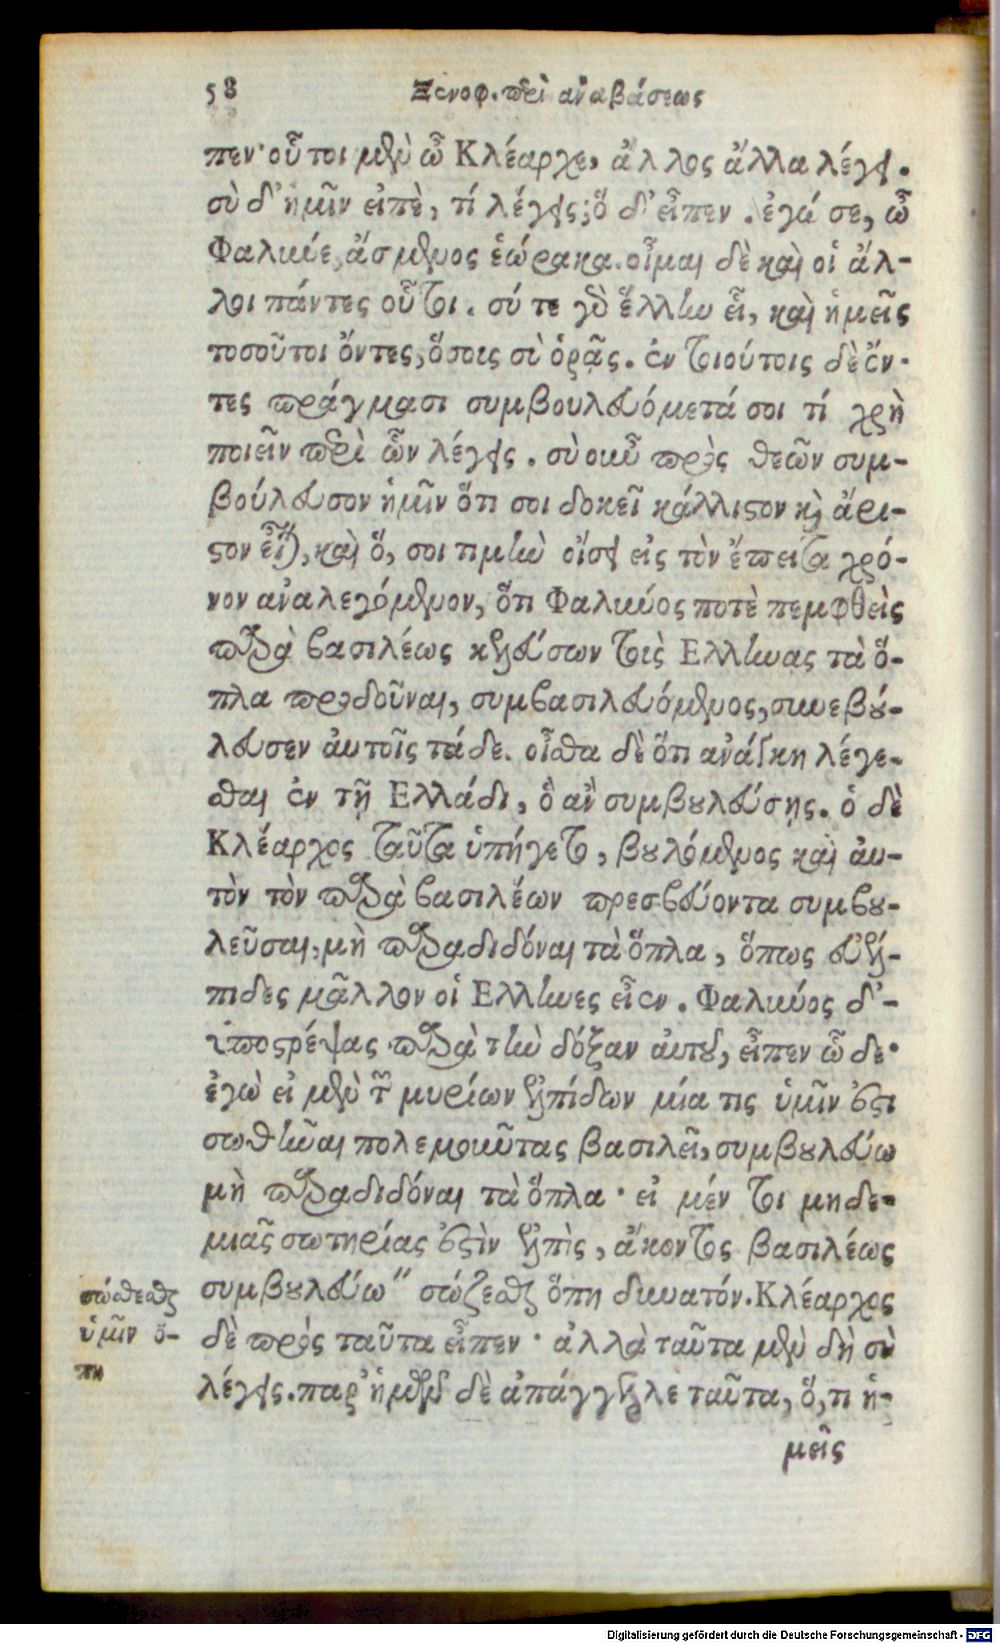 58
Ξενοφ. περὶ ἀναβάσεως
πεν· οὗτοι μὲν ὦ Κλέαρχε, ἄλλος ἄλλα λέγει.
σὺ δ' ἡμῖν εἰπὲ, τί λέγεις; ὅ δ' εἶπεν. ἐγώ σε, ὦ
Φαλινύε, ἄσμενος ἑώρακα. οἶμαι δὲ καὶ οἱ ἄλ-
λοι πάντες οὗτοι. σύ τε γὰρ ἕλλην εἶ, καὶ ἡμεῖς
τοσοῦτοι ὄντες, ὅσοις σὺ ὁρᾷς. ἐν τοιούτοις δὲ ὄν-
τες πράγμασι συμβουλευόμετά σοι τί χρὴ
ποιεῖν περὶ ὧν λέγεις. σὺ οὖν πρὸς θεῶν συμ-
βούλευσον ἡμῖν ὅτι σοι δοκεῖ κάλλιστον καὶ ἄρι-
στον εἶναι, καὶ ὅ, σοι τιμὴν οἴσει εἰς τὸν ἔπειτα χρό-
νον ἀναλεγόμενον, ὅτι Φαλινύος ποτὲ πεμφθεὶς
παρὰ βασιλέως κελεύσων τοὺς Ελληνας τὰ ὅ-
πλα προδοῦναι, συμβασιλευόμενος, συνεβού-
λευσεν αὐτοῖς τάδε. οἶσθα δὲ ὅτι ἀνάγκη λέγε-
σθαι ἐν τῇ Ελλάδι, ὃ ἂν συμβουλεύσῃς. ὁ δὲ
Κλέαρχος ταῦτα ὑπήγετο, βουλόμενος καὶ αὐ-
τὸν τὸν παρὰ βασιλέων πρεσβεύοντα συμβου-
λεῦσαι, μὴ παραδιδόναι τὰ ὅπλα, ὅπως εὐέλ-
πιδες μᾶλλον οἱ Ελληνες εἶεν. Φαλινύος δ'-
ὑποστρέψας παρὰ τὴν δόξαν αὐτοῦ, εἶπεν ὧδε·
ἐγὼ εἰ μὲν τῶν μυρίων ἐλπίδων μία τις ὑμῖν ἐστι
σωθῆναι πολεμοῦντας βασιλεῖ, συμβουλεύω
μὴ παραδιδόναι τὰ ὅπλα· εἰ μέν τοι μηδε-
μιᾶς σωτηρίας ἐστὶν ἐλπὶς, ἄκοντος βασιλέως
συμβουλεύω" σώζεσθαι ὅπη δυνατόν. Κλέαρχος
δὲ πρὸς ταῦτα εἶπεν· ἀλλὰ ταῦτα μὲν δὴ σὺ
λέγεις. παρ' ἡμῶν δὲ ἀπάγγελλε ταῦτα, ὅ, τι ἡ-
μεῖς
σώσεσθαι
ὑμῖν ὅ-
πη
Digitalisierung gefördert durch die Deutsche Forschungsgemeinschaft - DFG